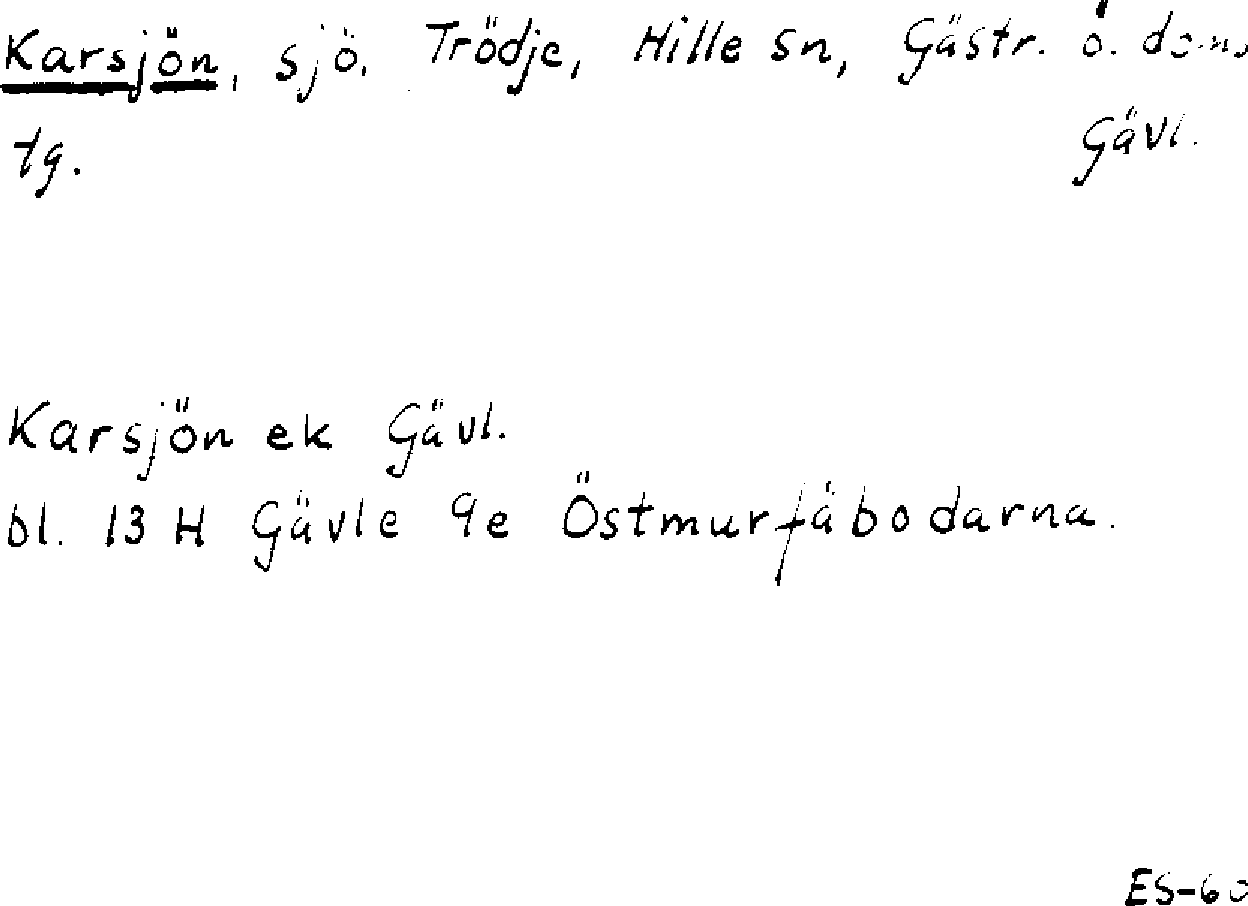 Karsjön, sjö, Trödje, Hille sn, Gästr. ö. doms
tg.
Gävl.
Karsjön ek Gävl.
bl. 13 H Gävle 9e Östmurfäbodarna.
ES-60